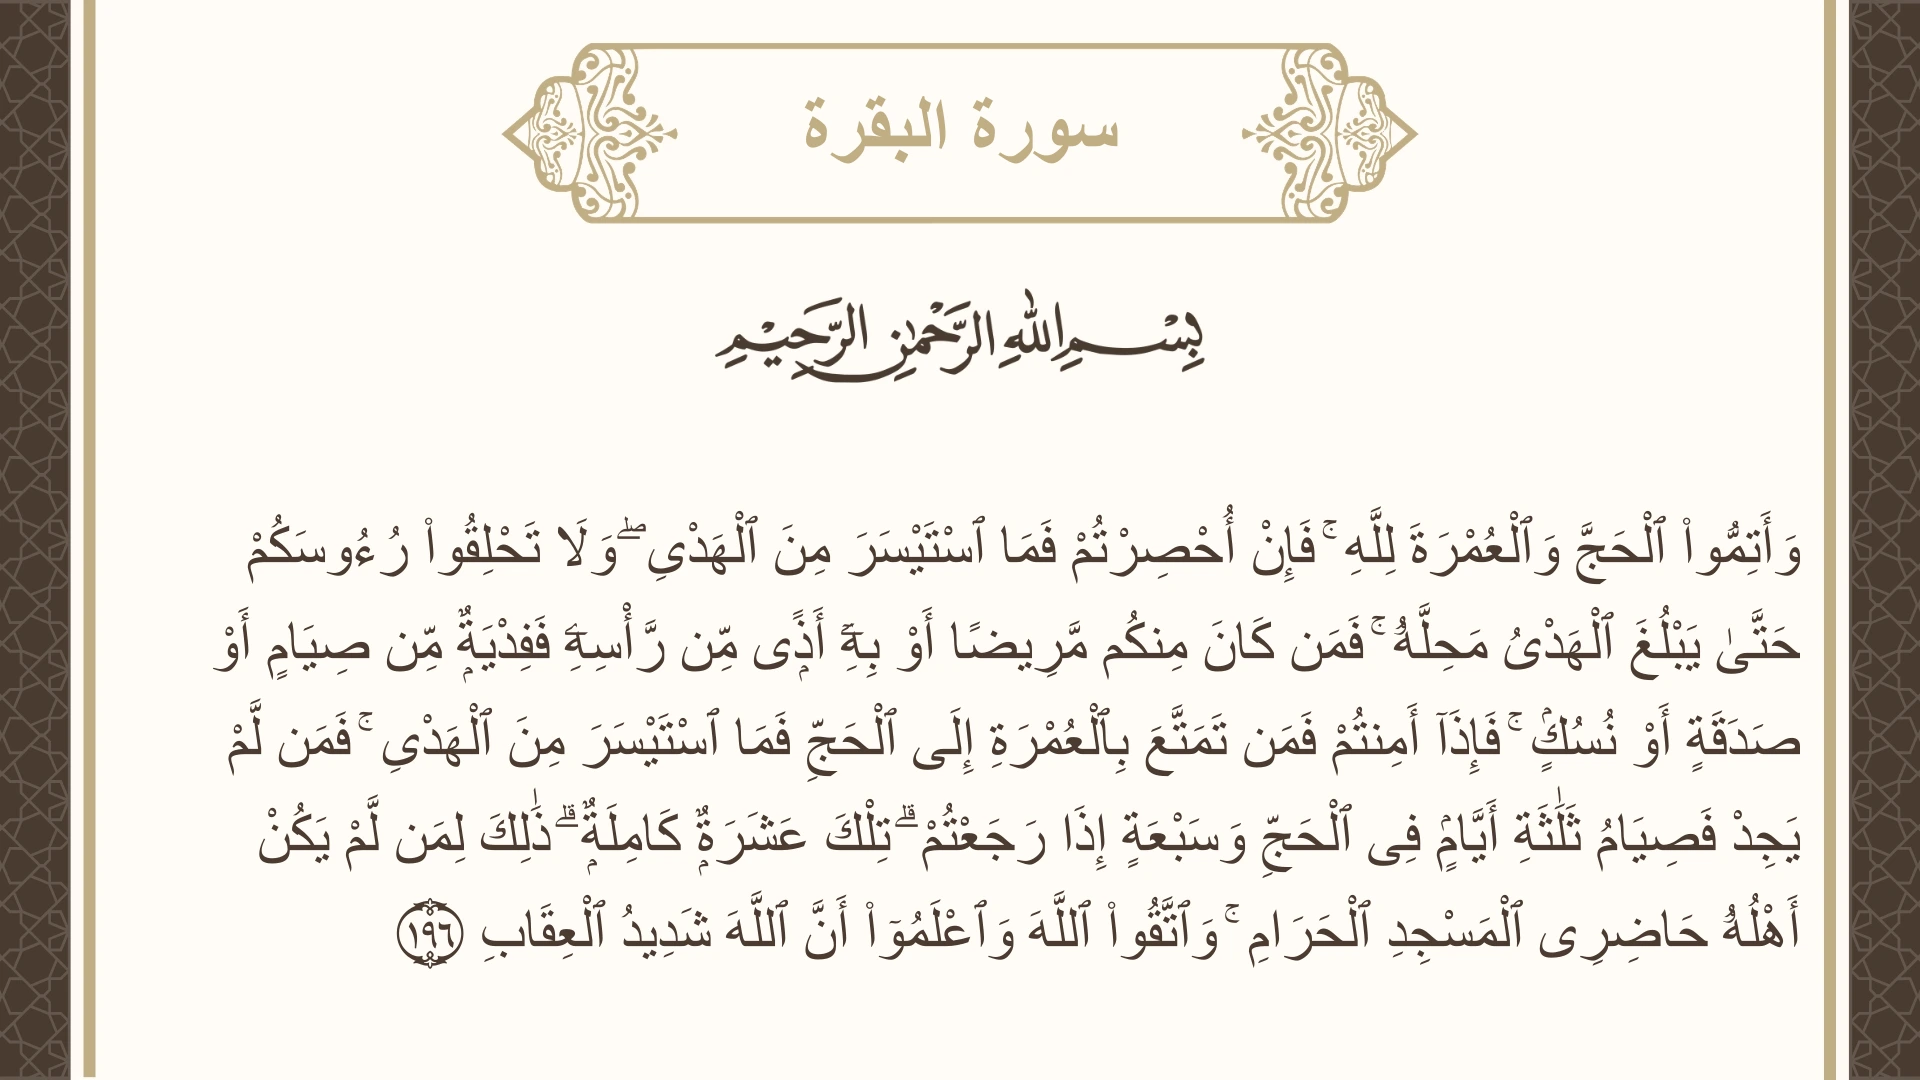 سورة البقرة
بِسْمِ اللهِ الرَّحْمٰنِ الرَّحِيْمِ
وَأَتِمُّوا۟ ٱلْحَجَّ وَٱلْعُمْرَةَ لِلَّهِ ۚ فَإِنْ أُحْصِرْتُمْ فَمَا ٱسْتَيْسَرَ مِنَ ٱلْهَدْىِ ۖ وَلَا تَحْلِقُوا۟ رُءُوسَكُمْ
حَتَّىٰ يَبْلُغَ ٱلْهَدْىُ مَحِلَّهُۥ ۚ فَمَن كَانَ مِنكُم مَّرِيضًا أَوْ بِهِۦٓ أَذًۭى مِّن رَّأْسِهِۦ فَفِدْيَةٌۭ مِّن صِيَامٍ أَوْ
صَدَقَةٍ أَوْ نُسُكٍۢ ۚ فَإِذَآ أَمِنتُمْ فَمَن تَمَتَّعَ بِٱلْعُمْرَةِ إِلَى ٱلْحَجِّ فَمَا ٱسْتَيْسَرَ مِنَ ٱلْهَدْىِ ۚ فَمَن لَّمْ
يَجِدْ فَصِيَامُ ثَلَـٰثَةِ أَيَّامٍۢ فِى ٱلْحَجِّ وَسَبْعَةٍ إِذَا رَجَعْتُمْ ۗ تِلْكَ عَشَرَةٌۭ كَامِلَةٌۭ ۗ ذَٰلِكَ لِمَن لَّمْ يَكُنْ
أَهْلُهُۥ حَاضِرِى ٱلْمَسْجِدِ ٱلْحَرَامِ ۚ وَٱتَّقُوا۟ ٱللَّهَ وَٱعْلَمُوٓا۟ أَنَّ ٱللَّهَ شَدِيدُ ٱلْعِقَابِ ١٩٦